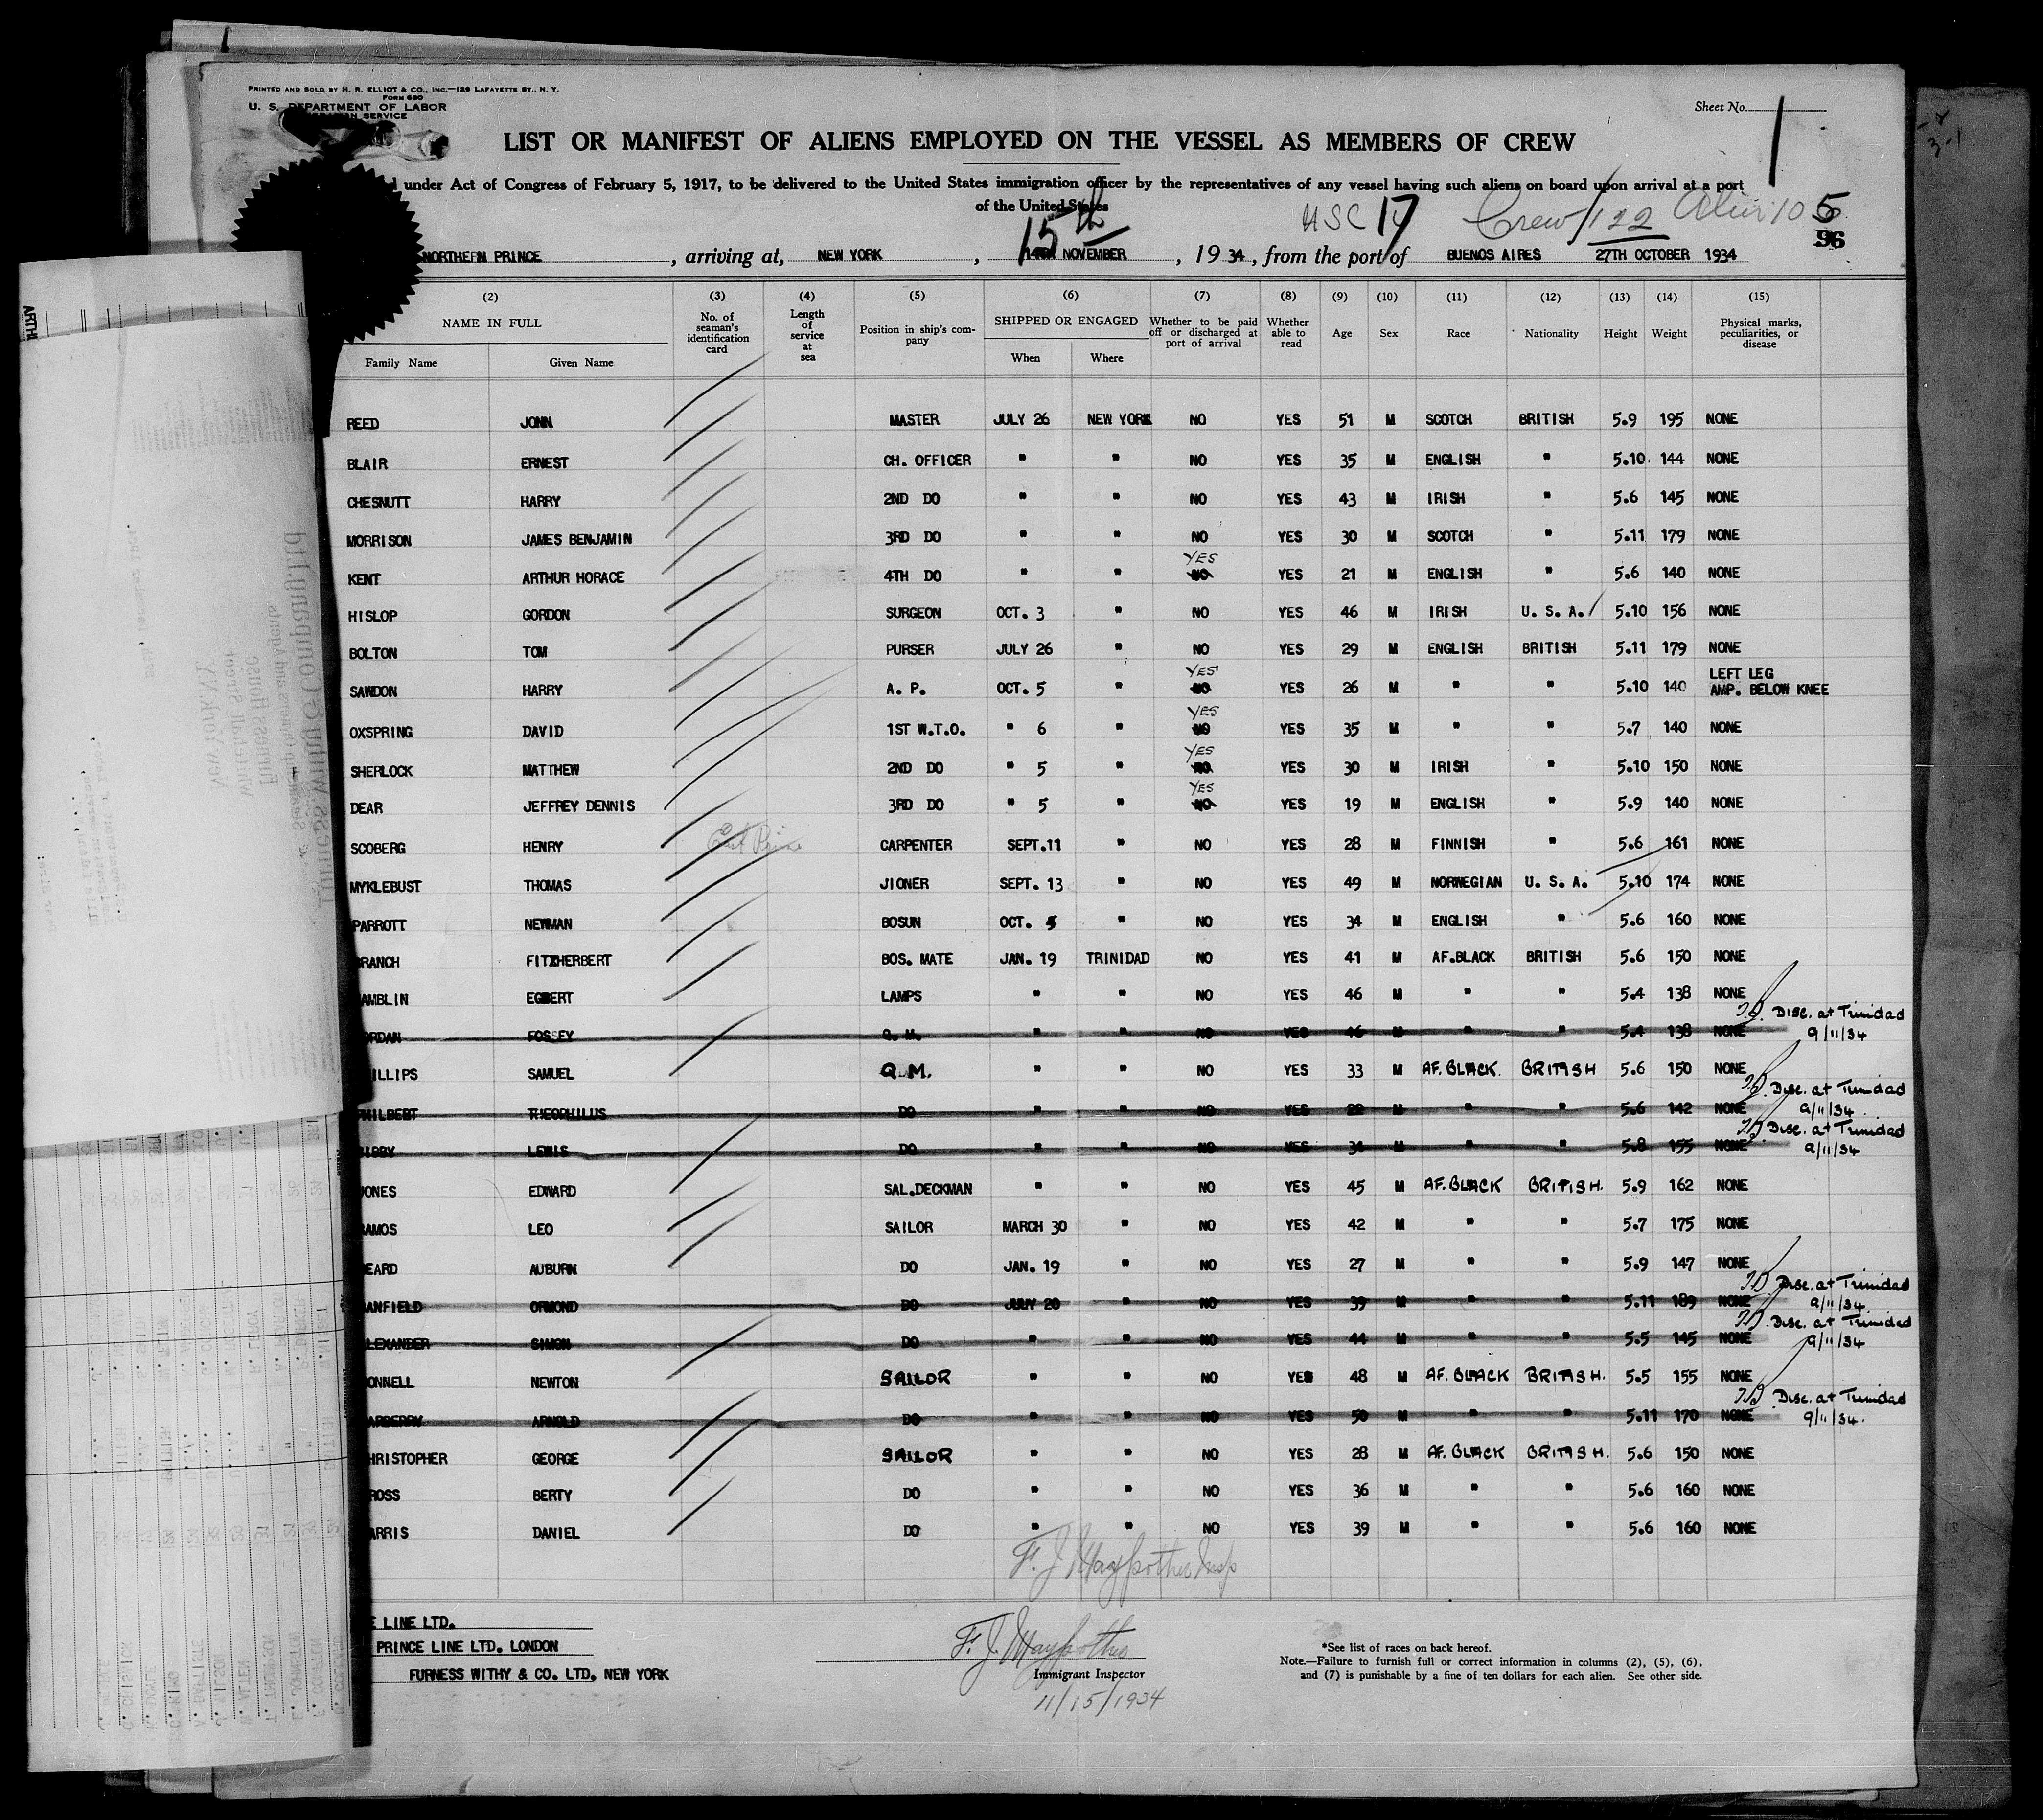 PRINTED AND SOLD BY H. R. ELLIOT & CO., INC.—129 LAFAYETTE ST., N. Y.
FORM 680
U. S. DEPARTMENT OF LABOR
SERVICE
Sheet No. 1
LIST OR MANIFEST OF ALIENS EMPLOYED ON THE VESSEL AS MEMBERS OF CREW
under Act of Congress of February 5, 1917, to be delivered to the United States immigration officer by the representatives of any vessel having such aliens on board upon arrival at a port
of the United States
USC 17 Crew 122 105
96
NORTHERN PRINCE , arriving at, NEW YORK , 15th NOVEMBER , 19 34 , from the port of BUENOS AIRES 27TH OCTOBER 1934
(2) (3) (4) (5) (6) (7) (8) (9) (10) (11) (12) (13) (14) (15)
NAME IN FULL No. of seaman's identification card Length of service at sea Position in ship's com-pany SHIPPED OR ENGAGED Whether to be paid off or discharged at port of arrival Whether able to read Age Sex Race Nationality Height Weight Physical marks, peculiarities, or disease
Family Name Given Name When Where
REED JONN MASTER JULY 26 NEW YORK NO YES 51 M SCOTCH BRITISH 5.9 195 NONE
BLAIR ERNEST CH. OFFICER " " NO YES 35 M ENGLISH " 5.10 144 NONE
CHESNUTT HARRY 2ND DO " " NO YES 43 M IRISH " 5.6 145 NONE
MORRISON JAMES BENJAMIN 3RD DO " " NO YES 30 M SCOTCH " 5.11 179 NONE
YES
KENT ARTHUR HORACE 4TH DO " " NO YES 21 M ENGLISH " 5.6 140 NONE
HISLOP GORDON SURGEON OCT. 3 " NO YES 46 M IRISH U. S. A. 5.10 156 NONE
BOLTON TOM PURSER JULY 26 " NO YES 29 M ENGLISH BRITISH 5.11 179 NONE
YES LEFT LEG
SAWDON HARRY A. P. OCT. 5 " NO YES 26 M " " 5.10 140 AMP. BELOW KNEE
YES
OXSPRING DAVID 1ST W.T.O. " 6 " NO YES 35 M " " 5.7 140 NONE
YES
SHERLOCK MATTHEW 2ND DO " 5 " NO YES 30 M IRISH " 5.10 150 NONE
YES
DEAR JEFFREY DENNIS 3RD DO " 5 " NO YES 19 M ENGLISH " 5.9 140 NONE
SCOBERG HENRY CARPENTER SEPT.11 " NO YES 28 M FINNISH " 5.6 161 NONE
MYKLEBUST THOMAS JIONER SEPT. 13 " NO YES 49 M NORWEGIAN U. S. A. 5.10 174 NONE
PARROTT NEWMAN BOSUN OCT. 5 " NO YES 34 M ENGLISH " 5.6 160 NONE
BRANCH FITZHERBERT BOS. MATE JAN. 19 TRINIDAD NO YES 41 M AF.BLACK BRITISH 5.6 150 NONE
AMBLIN EGBERT LAMPS " " NO YES 46 M " " 5.4 138 NONE
Disc. at Trinidad
ORDAN FOSSEY Q. M. " " NO YES 46 M " " 5.4 138 NONE 9/11/34
ILLIPS SAMUEL Q.M. " " NO YES 33 M AF. BLACK. BRITISH 5.6 150 NONE
Disc. at Trinidad
HILBERT THEOPHILUS DO " " NO YES 22 M " " 5.6 142 NONE 9/11/34.
Disc. at Trinidad
IBBY LEWIS DO " " NO YES 34 M " " 5.8 155 NONE 9/11/34
JONES EDWARD SAL.DECKMAN " " NO YES 45 M AF. BLACK BRITISH. 5.9 162 NONE
AMOS LEO SAILOR MARCH 30 " NO YES 42 M " " 5.7 175 NONE
EARD AUBURN DO JAN. 19 " NO YES 27 M " " 5.9 147 NONE
Disc. at Trinidad
ANFIELD ORMOND DO JULY 20 " NO YES 39 M " " 5.11 189 NONE 9/11/34.
Disc. at Trinidad
LEXANDER SIMON DO " " NO YES 44 M " " 5.5 145 NONE 9/11/34
ONNELL NEWTON SAILOR " " NO YES 48 M AF. BLACK BRITISH. 5.5 155 NONE
Disc. at Trinidad
ARBERRY ARNOLD DO " " NO YES 50 M " " 5.11 170 NONE 9/11/34.
HRISTOPHER GEORGE SAILOR " " NO YES 28 M AF. BLACK BRITISH. 5.6 150 NONE
ROSS BERTY DO " " NO YES 36 M " " 5.6 160 NONE
ARRIS DANIEL DO " " NO YES 39 M " " 5.6 160 NONE
E LINE LTD.
PRINCE LINE LTD. LONDON
FURNESS WITHY & CO. LTD, NEW YORK
Immigrant Inspector
11/15/1934
*See list of races on back hereof.
Note.—Failure to furnish full or correct information in columns (2), (5), (6),
and (7) is punishable by a fine of ten dollars for each alien. See other side.